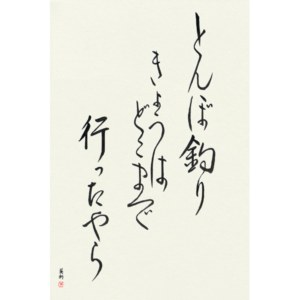 とんぼ釣り
きょうは
どこまで
行ったやら